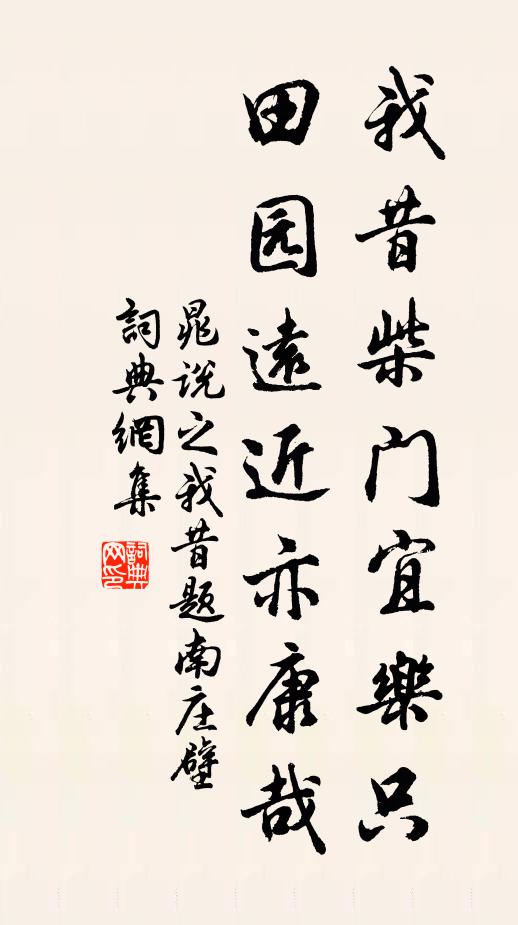 我昔柴门宜樂只
田园遠近亦康哉
晁说之我昔题南庄壁
詞典網集
詞典网印